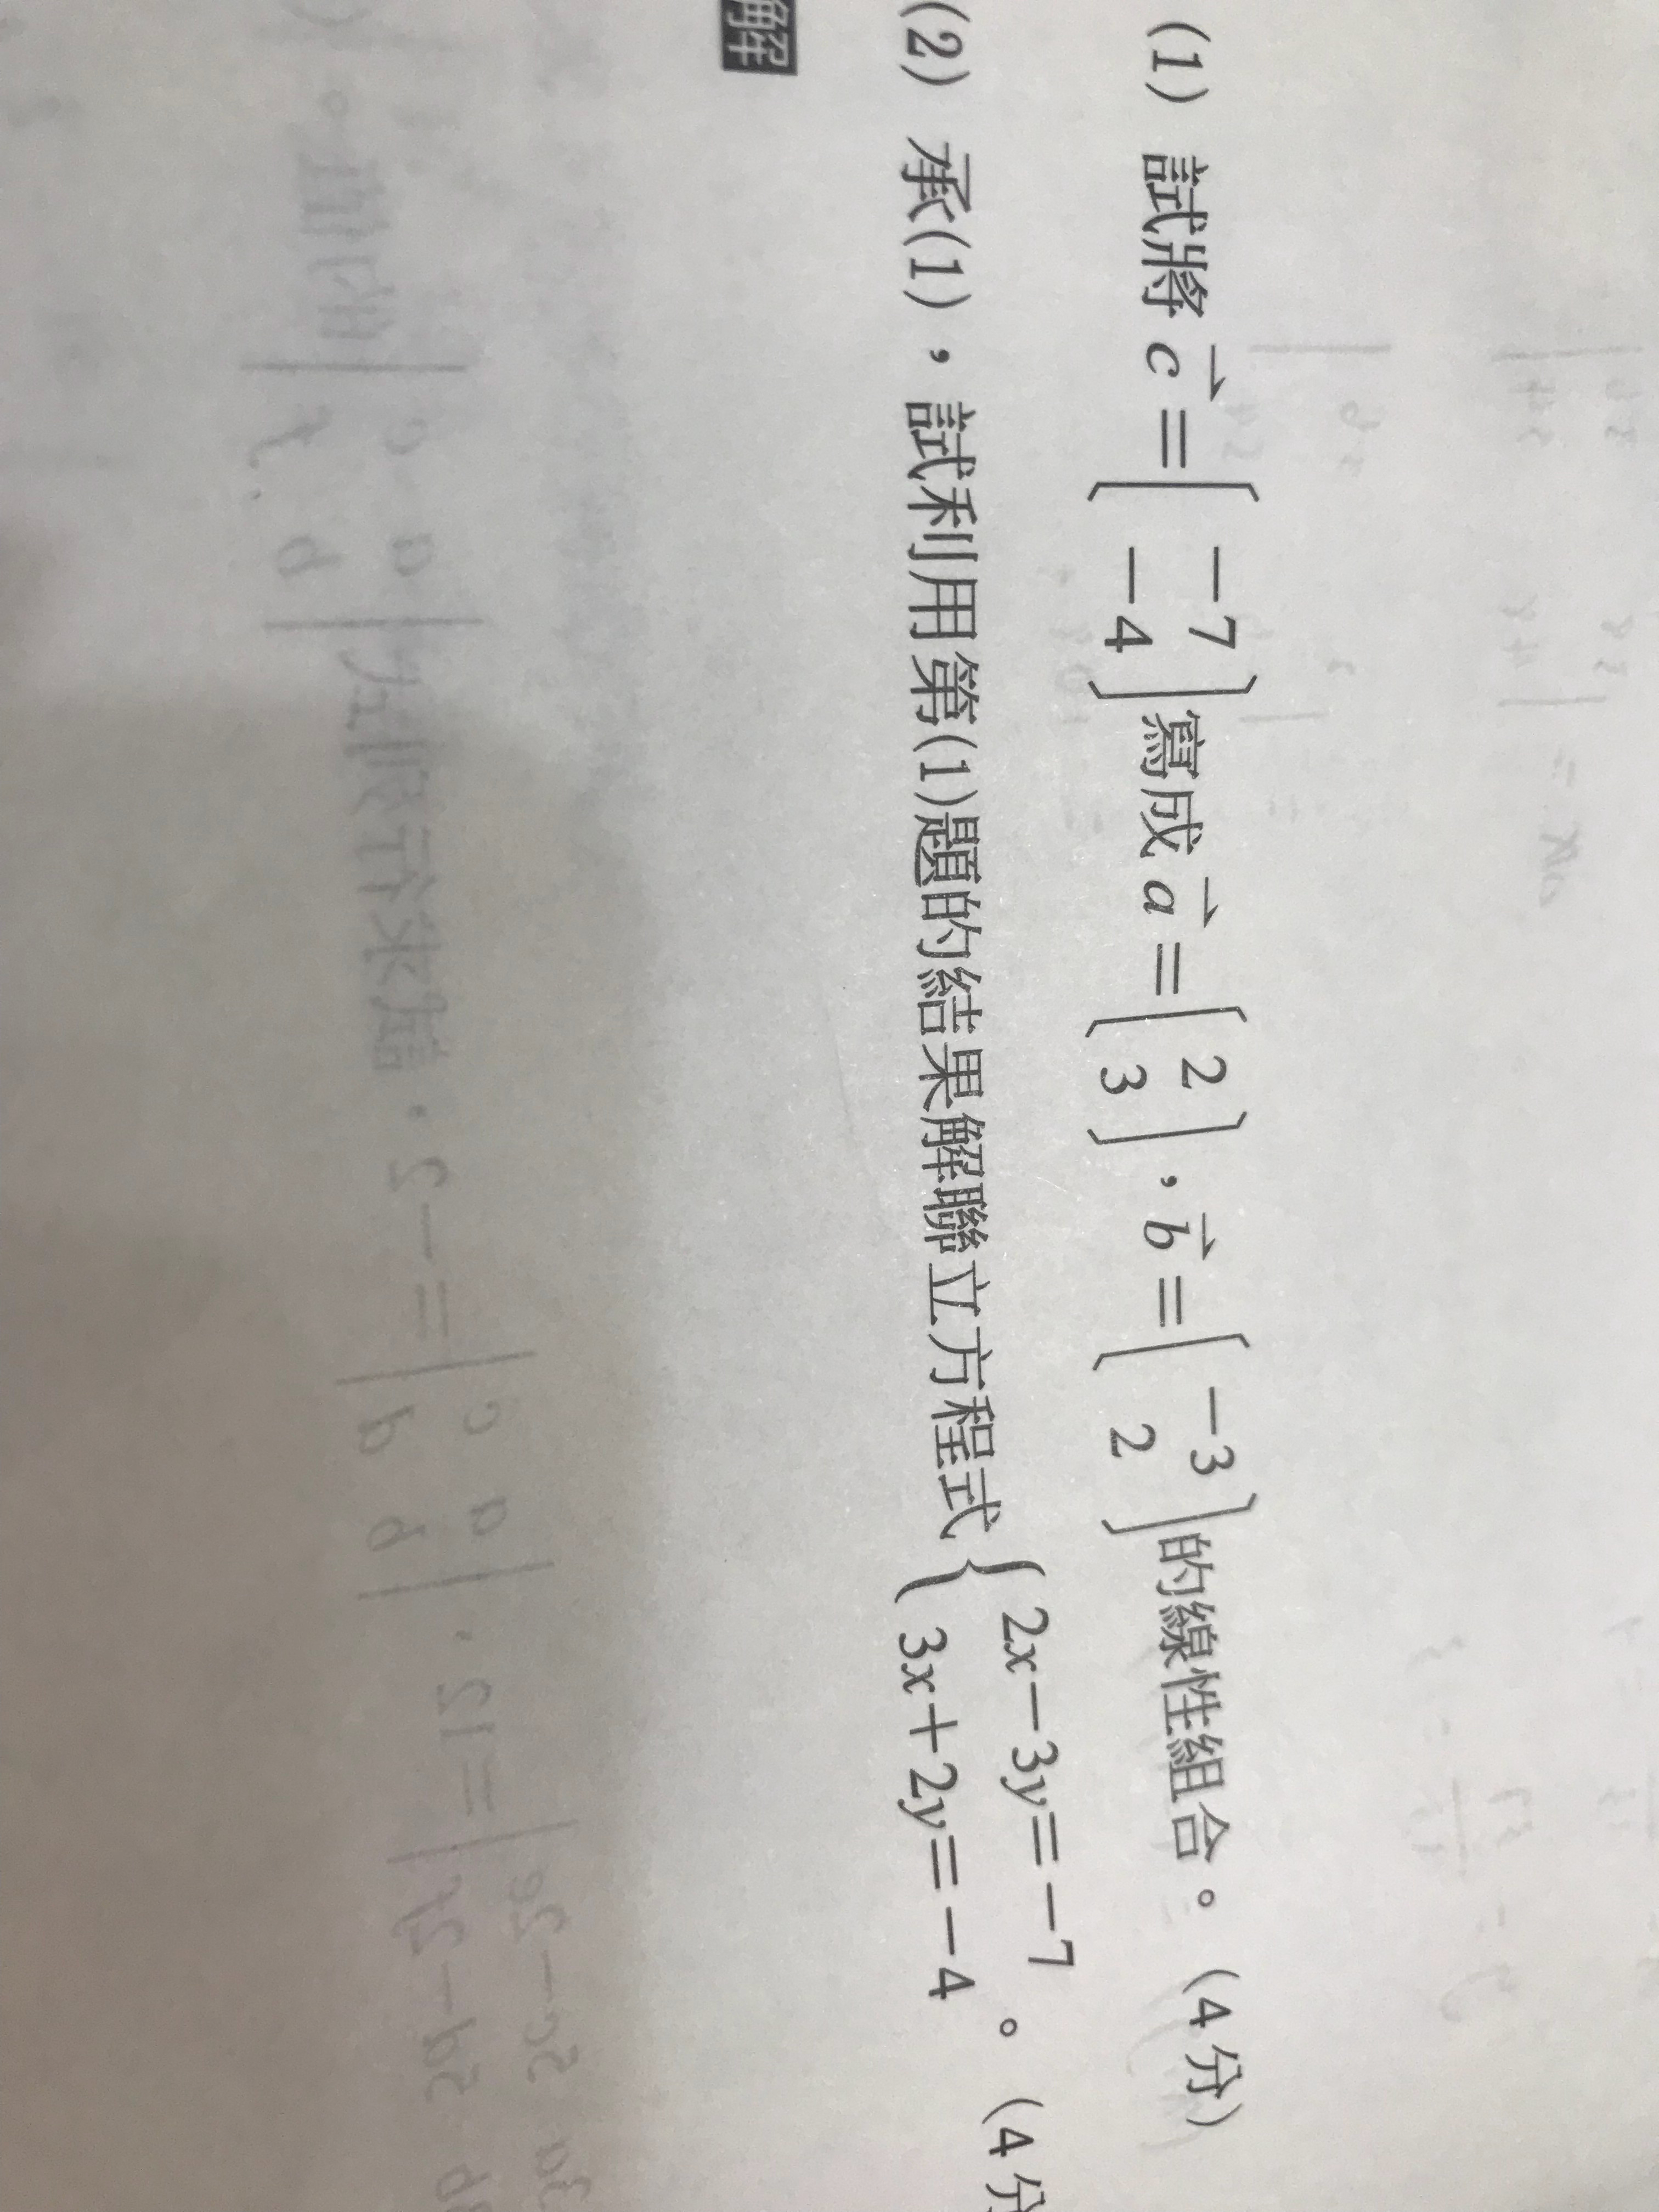 (1) 試將 c⃗ = [ -7 -4 ] 寫成 a⃗ = [ 2 3 ], b⃗ = [ -3 2 ] 的線性組合。(4分)
(2) 承(1),試利用第(1)題的結果解聯立方程式 { 2x-3y=-7 3x+2y=-4 。(4分
解